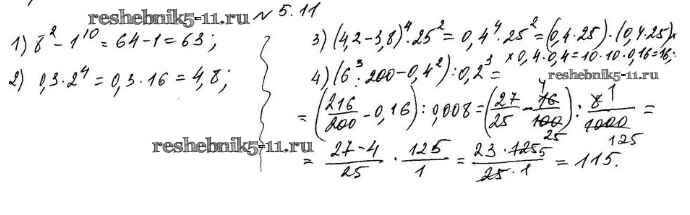 reshebnik5-11.ru
№ 5.11
1) 8² - 1¹⁰ = 64 - 1 = 63;
2) 0,3 · 2⁴ = 0,3 · 16 = 4,8;
3) (4,2 - 3,8)⁴ · 25² = 0,4⁴ · 25² = (0,4·25) · (0,4·25) ×
× 0,4 · 0,4 = 10 · 10 · 0,16 = 16;
4) (6³ : 200 - 0,4²) : 0,2³ =
reshebnik5-11.ru
= (216/200 - 0,16) : 0,008 = (27/25 - 16/100) : 8/1000 =
4 25 1 125
reshebnik5-11.ru
= 27-4/25 · 125/1 = 23 · 125/25 · 1 = 115.
5